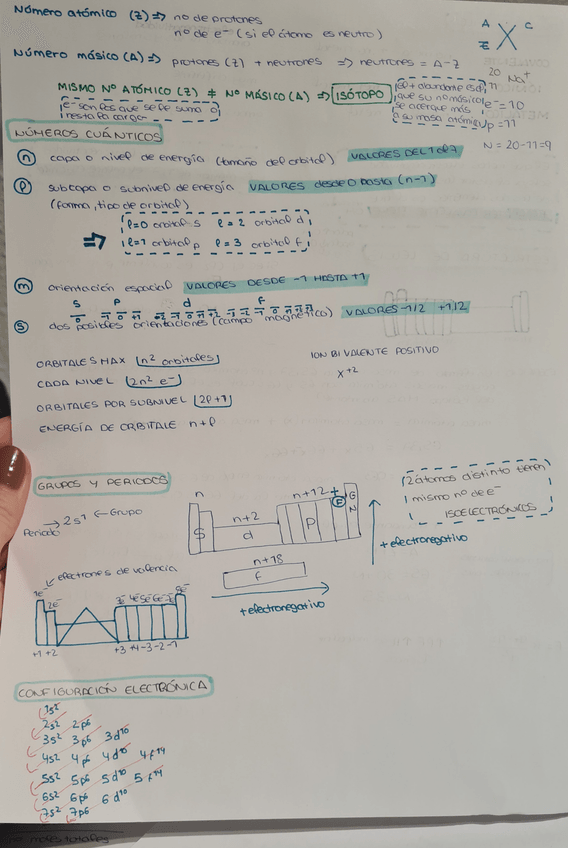 Número atómico (Z) => nº de protones
nº de e⁻ (si el átomo es neutro)
A X C
Z
Número másico (A) => protones (Z) + neutrones => neutrones = A-Z
MISMO Nº ATÓMICO (Z) ≠ Nº MÁSICO (A) => ISÓTOPO
e⁻ son los que se le suma o
resta la carga
el + abundante es el
que su nº másico
se acerque más
a su masa atómica
20 Na⁺
11
e⁻ = 10
p = 11
N = 20-11=9
NÚMEROS CUÁNTICOS
n capa o nivel de energía (tamaño del orbital) VALORES DEL 1 al 7
l subcapa o subnivel de energía VALORES desde 0 hasta (n-1)
(forma, tipo de orbital)
l=0 orbital s l=2 orbital d
=> l=1 orbital p l=3 orbital f
m orientación espacial VALORES DESDE -1 HASTA +1
s p d f
0 -1 0 +1 -2 -1 0 +1 +2
s dos posibles orientaciones (campo magnético) VALORES -1/2 +1/2
ORBITALES MAX n² orbitales
CADA NIVEL 2n² e⁻
ORBITALES POR SUBNIVEL 2l+1
ENERGÍA DE ORBITALE n+l
ION BIVALENTE POSITIVO
X⁺²
GRUPOS Y PERIODOS
Periodo → 2s¹ ← Grupo
n
s
n+2
d
n+12
p
+
F
G
N
n+18
f
+electronegativo
+electronegativo
2 átomos distinto tienen
mismo nº de e⁻
ISOELECTRÓNICOS
electrones de valencia
1e⁻ 2e⁻ 3e⁻ 4e⁻ 5e⁻ 6e⁻ 7e⁻ 8e⁻
+1 +2 +3 +4 -3 -2 -1
CONFIGURACIÓN ELECTRÓNICA
1s²
2s² 2p⁶
3s² 3p⁶ 3d¹⁰
4s² 4p⁶ 4d¹⁰ 4f¹⁴
5s² 5p⁶ 5d¹⁰ 5f¹⁴
6s² 6p⁶ 6d¹⁰
7s² 7p⁶